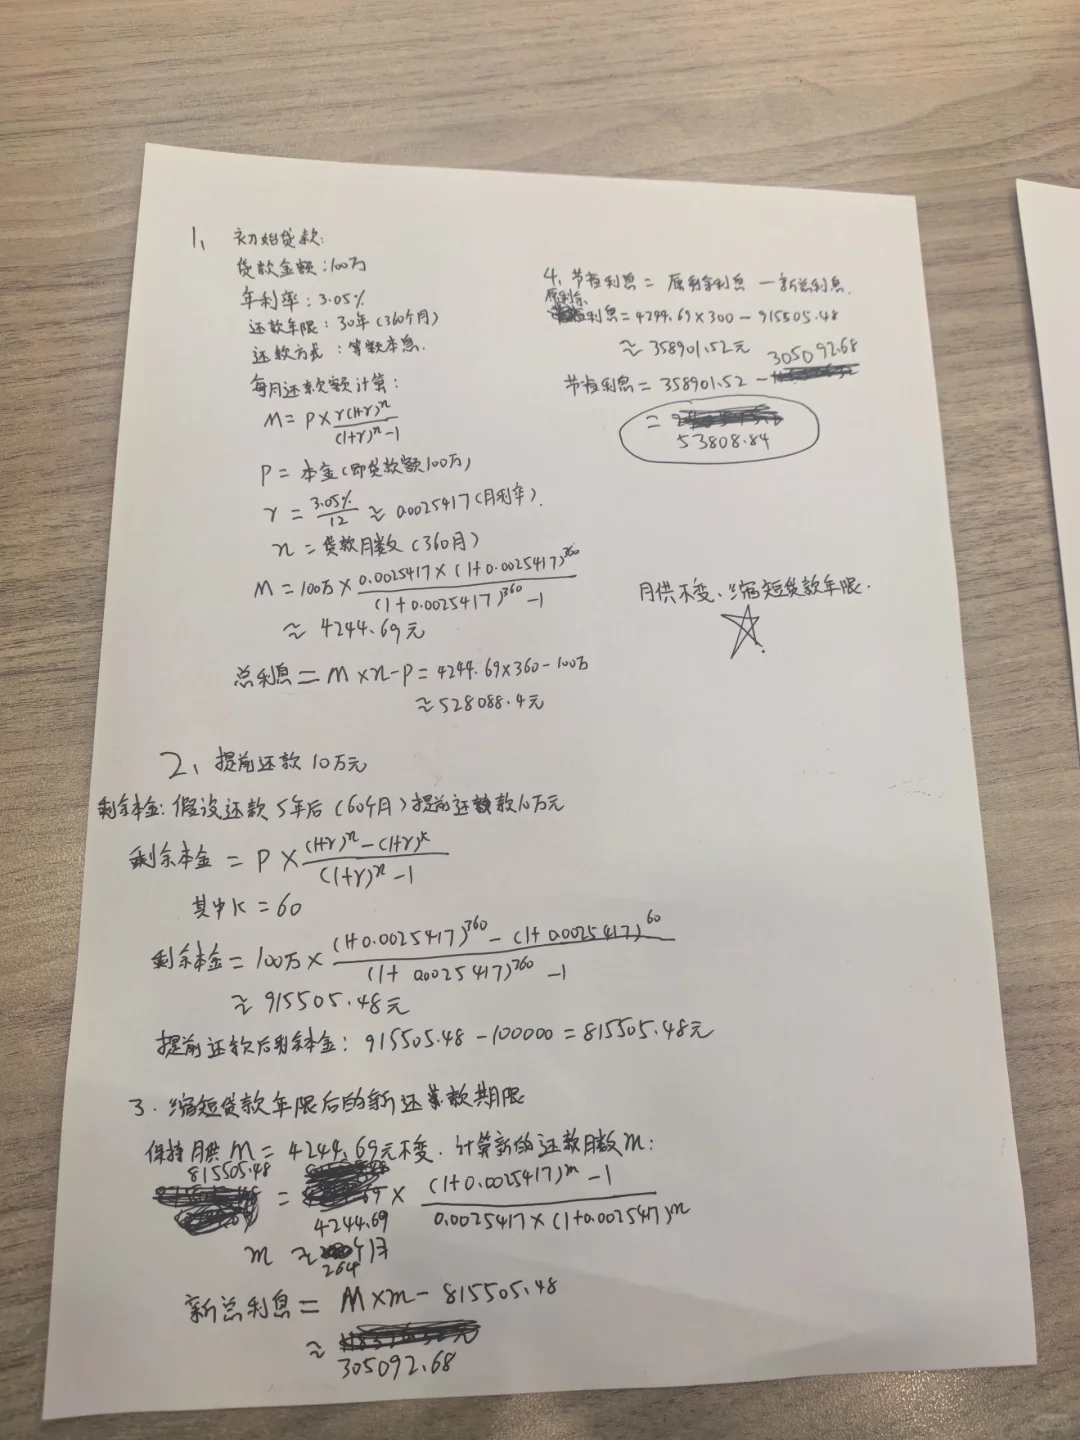 1、初始贷款:
贷款金额:100万
年利率:3.05%
还款年限:30年(360个月)
还款方式:等额本息.
每月还款额计算:
M = P × r(1+r)^n / (1+r)^n - 1
P = 本金(即贷款额100万)
r = 3.05% / 12 ≈ 0.0025417(月利率).
n = 贷款月数(360月)
M = 100万 × 0.0025417×(1+0.0025417)^360 / (1+0.0025417)^360 - 1
≈ 4244.69元
总利息 = M×n-P = 4244.69×360-100万
≈ 528088.4元
2、提前还款10万元
剩余本金:假设还款5年后(60个月)提前还款10万元
剩余本金 = P × (1+r)^n - (1+r)^k / (1+r)^n - 1
其中K = 60
剩余本金 = 100万 × (1+0.0025417)^360 - (1+0.0025417)^60 / (1+0.0025417)^360 - 1
≈ 915505.48元
提前还款后剩余本金:915505.48-100000=815505.48元
3.缩短贷款年限后的新还款期限
保持月供M = 4244.69元不变.计算新的还款月数m:
815505.48 = 4244.69 × (1+0.0025417)^m - 1 / 0.0025417×(1+0.0025417)^m
m ≈ 264个月
新总利息 = M×m-815505.48
≈ 305092.68
4、节省利息 = 原剩余利息 - 新总利息.
原剩余利息=4244.69×300-915505.48
≈ 358901.52元
节省利息 = 358901.52 - 305092.68
= 53808.84
月供不变、缩短贷款年限.